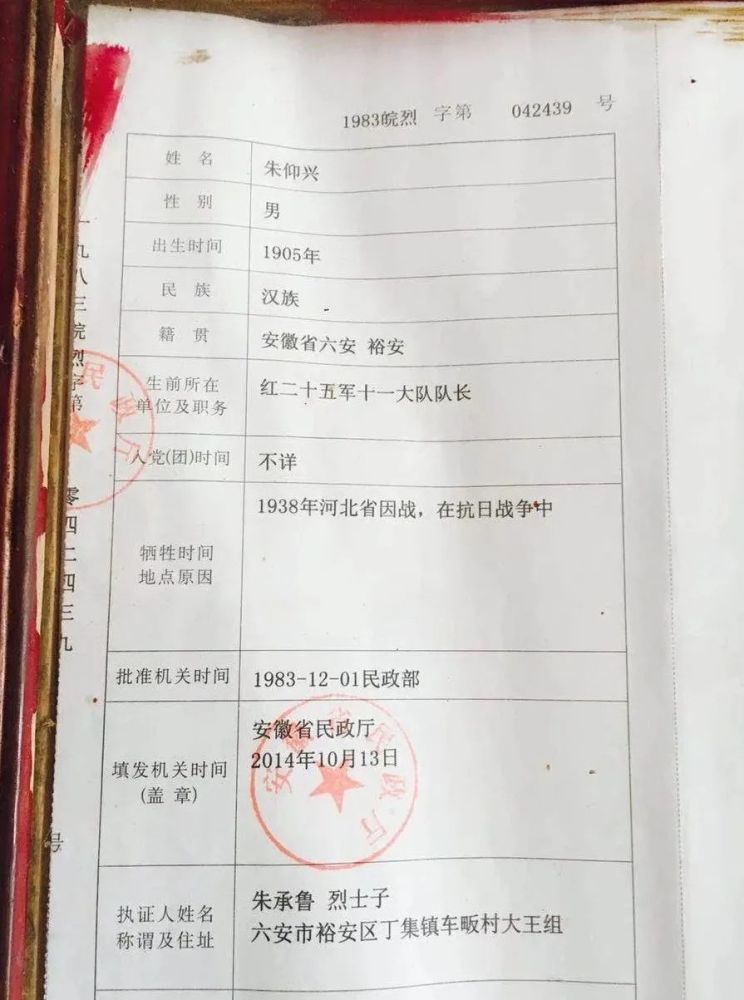 1983皖烈 字第 042439 号
姓 名 朱仰兴
性 别 男
出生时间 1905年
民 族 汉族
籍 贯 安徽省六安 裕安
生前所在
单位及职务
红二十五军十一大队队长
入党(团)时间 不详
牺牲时间
地点原因
1938年河北省因战，在抗日战争中
批准机关时间 1983-12-01民政部
填发机关时间
(盖 章)
安徽省民政厅
2014年10月13日
安徽省民政厅
执证人姓名
称谓及住址
朱承鲁 烈士子
六安市裕安区丁集镇车畈村大王组
一九八三皖烈字第 零四二四三九 号
民政厅